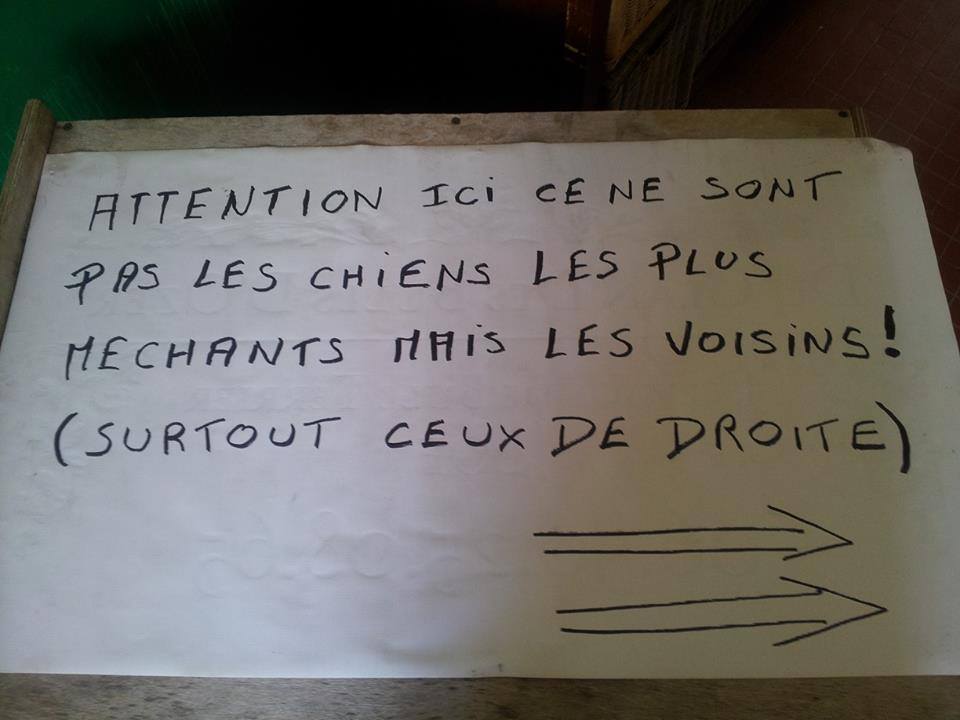 ATTENTION ICI CE NE SONT
PAS LES CHIENS LES PLUS
MECHANTS MAIS LES VOISINS!
(SURTOUT CEUX DE DROITE)